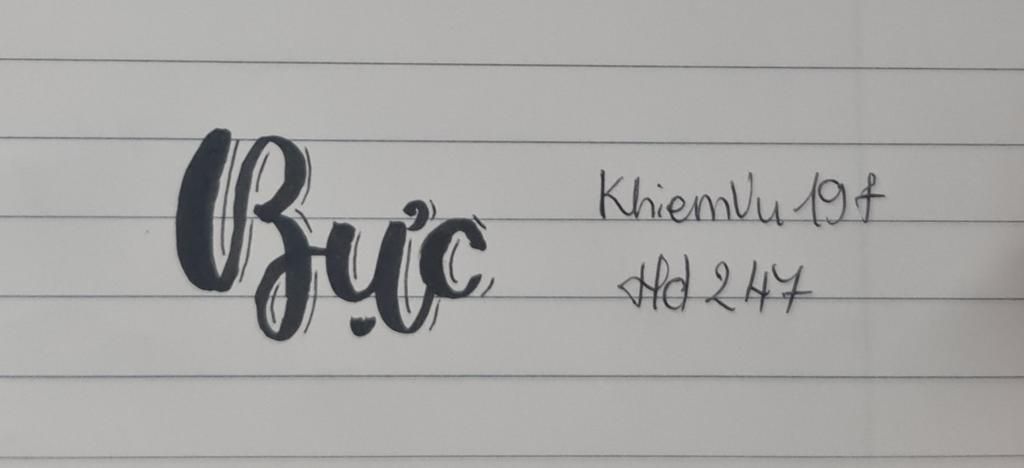 Bực
KhiemVu 19t
Hd 247